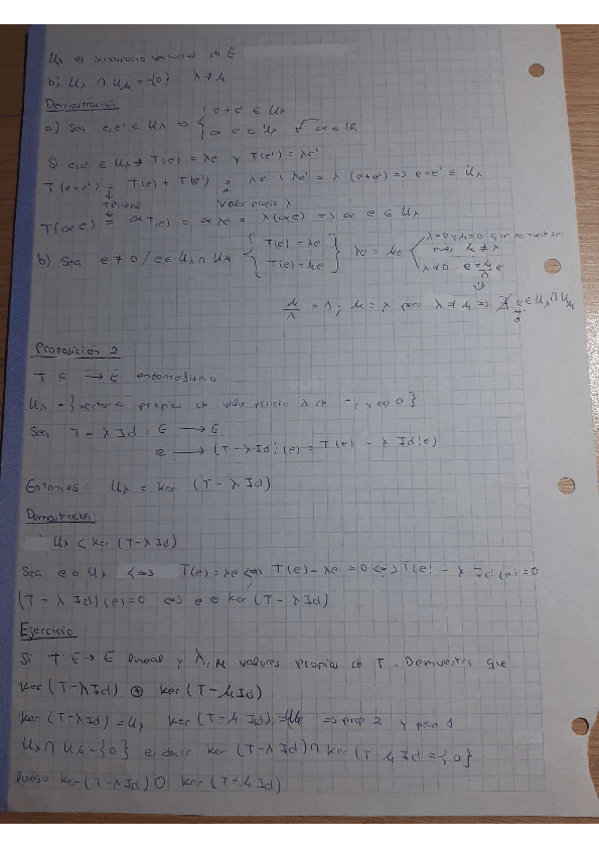 Uλ es subespacio vectorial de E
b) Uλ ∩ Uμ = {0} λ ≠ μ
Demostración
a) Sea e, e' ∈ Uλ ⇒ { e + e' ∈ Uλ
α e ∈ Uλ ∀ α ∈ ℝ
Si e, e' ∈ Uλ → T(e) = λe y T(e') = λe'
T(e+e') = T(e) + T(e') = λe + λe' = λ(e+e') ⇒ e+e' ∈ Uλ
valor propio λ
T(αe) = αT(e) = αλe = λ(αe) ⇒ α e ∈ Uλ
b) Sea e ≠ 0 / e ∈ Uλ ∩ Uμ { T(e) = λe
T(e) = μe } λe = μe
λ=0 y μ=0 que no puede ser pues μ ≠ λ
λ ≠ 0 e = μ/λ e
μ = λ pero λ ≠ μ ⇒ ∄ e ∈ Uλ ∩ Uμ
Proposición 2
T: E → E endomorfismo
Uλ = {vectores propios de valor propio λ de T y e=0}
Sea T - λ Id : E → E
e → (T - λ Id)(e) = T(e) - λ Id(e)
Entonces: Uλ = Ker (T - λ Id)
Demostración:
Uλ ⊂ Ker (T - λ Id)
Sea e ∈ Uλ ⟺ T(e) = λe ⟺ T(e) - λe = 0 ⟺ T(e) - λ Id(e) = 0
(T - λ Id)(e) = 0 ⟺ e ∈ Ker (T - λ Id)
Ejercicio
Si T: E → E lineal y λ, μ valores propios de T. Demuestra que
Ker (T - λ Id) ⊕ Ker (T - μ Id)
Ker (T - λ Id) = Uλ Ker (T - μ Id) = Uμ ⇒ prop 2 y prop 1
Uλ ∩ Uμ = {0} es decir Ker (T - λ Id) ∩ Ker (T - μ Id) = {0}
luego Ker (T - λ Id) ⊕ Ker (T - μ Id)